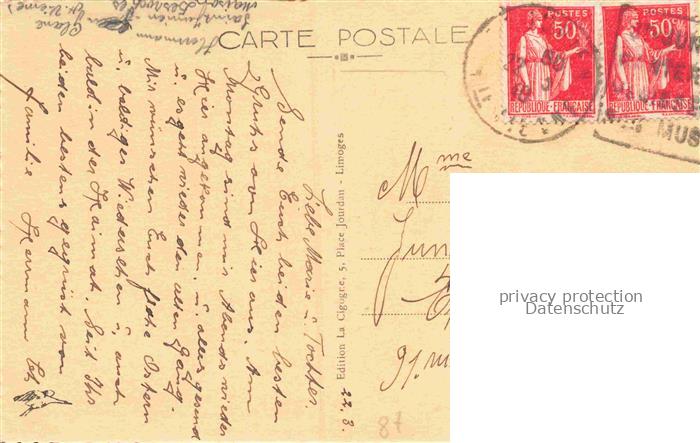 CARTE POSTALE
Liebe Marie u. Tochter.
Sende Euch beiden besten
Gruss von Hier aus. Am
Montag sind wir Abends wieder
Hier angekommen. u. alles gesund
u. es geht wieder den alten Gang.
Wir wünschen Euch frohe Ostern
u. baldiges Wiedersehen u. auch
bald in der Heimat. Seit Ihr
beiden bestens gegrüst von
Familie Hermann
Hermann
22. 3.
Edition La Cigogne, 5, Place Jourdan - Limoges
Mme
POSTES
50c
REPUBLIQUE-FRANÇAISE
POSTES
50c
REPUBLIQUE-FRANÇAISE
MUS
87
privacy protection
Datenschutz